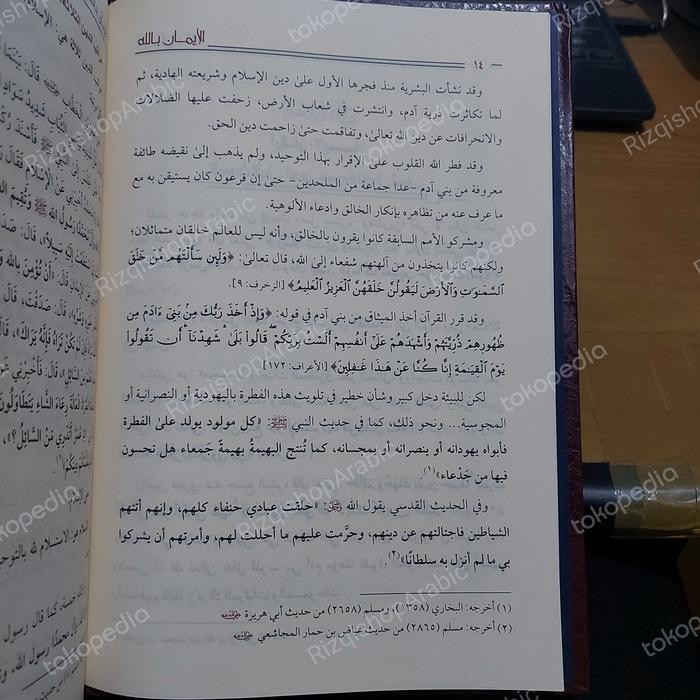 ١٤
الإيمان بالله
وقد نشأت البشرية منذ فجرها الأول علىٰ دين الإسلام وشريعته الهادية، ثم
لما تكاثرت ذرية آدم، وانتشرت في شعاب الأرض، زحفت عليها الضلالات
والانحرافات عن دين الله تعالىٰ، وتفاقمت حتىٰ زاحمت دين الحق.
وقد فطر الله القلوب على الإقرار بهذا التوحيد، ولم يذهب إلىٰ نقيضه طائفة
معروفة من بني آدم -عدا جماعة من الملحدين- حتىٰ إن فرعون كان يستيقن به مع
ما عرف عنه من تظاهره بإنكار الخالق وادعاء الألوهية.
ومشركو الأمم السابقة كانوا يقرون بالخالق، وأنه ليس للعالم خالقان متماثلان؛
ولكنهم كانوا يتخذون من آلهتهم شفعاء إلى الله، قال تعالىٰ: ﴿وَلَئِن سَأَلْتَهُم مَّنْ خَلَقَ
السَّمَٰوَٰتِ وَالْأَرْضَ لَيَقُولُنَّ خَلَقَهُنَّ الْعَزِيزُ الْعَلِيمُ﴾ [الزخرف: ٩].
وقد قرر القرآن أخذ الميثاق من بني آدم في قوله: ﴿وَإِذْ أَخَذَ رَبُّكَ مِنۢ بَنِىٓ ءَادَمَ مِن
ظُهُورِهِمْ ذُرِّيَّتَهُمْ وَأَشْهَدَهُمْ عَلَىٰٓ أَنفُسِهِمْ أَلَسْتُ بِرَبِّكُمْ ۖ قَالُوا۟ بَلَىٰ ۛ شَهِدْنَآ ۛ أَن تَقُولُوا۟
يَوْمَ الْقِيَٰمَةِ إِنَّا كُنَّا عَنْ هَٰذَا غَٰفِلِينَ﴾ [الأعراف: ١٧٢].
لكن للبيئة دخل كبير وشأن خطير في تلويث هذه الفطرة باليهودية أو النصرانية أو
المجوسية... ونحو ذلك، كما في حديث النبي ﷺ: «كل مولود يولد على الفطرة
فأبواه يهودانه أو ينصرانه أو يمجسانه، كما تُنتج البهيمةُ بهيمةً جَمعاء هل تحسون
فيها من جَدْعاء»(١)
وفي الحديث القدسي يقول الله ﷻ: «خلقت عبادي حنفاء كلهم، وإنهم أتتهم
الشياطين فاجتالتهم عن دينهم، وحرَّمت عليهم ما أحللت لهم، وأمرتهم أن يشركوا
بي ما لم أنزل به سلطانًا»(٢).
(١) أخرجه: البخاري (١٣٥٨)، ومسلم (٢٦٥٨) من حديث أبي هريرة
(٢) أخرجه: مسلم (٢٨٦٥) من حديث عياض بن حمار المجاشعي
tokopedia
RizqishopArabic